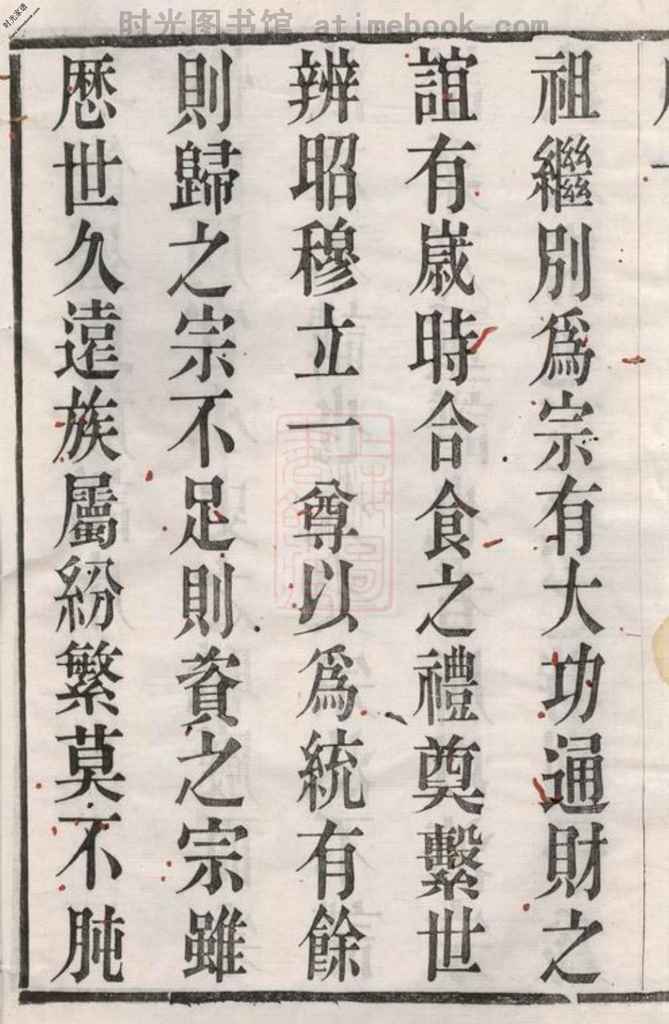 时光图书馆 atimebook.com
祖繼別爲宗有大功通財之
誼有嵗時合食之禮奠繫世
辨昭穆立一尊以爲統有餘
則歸之宗不足則資之宗雖
歴世久遠族屬紛繁莫不肫